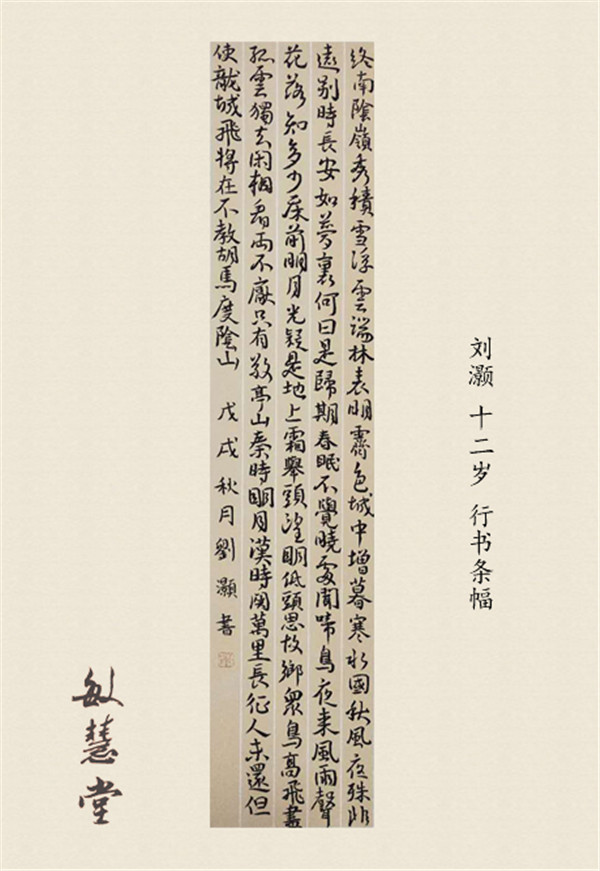 刘灏 十二岁 行书条幅
终南陰嶺秀積雪浮雲端林表明霽色城中增暮寒水國秋風夜殊非
遠别時長安如夢裏何日是歸期春眠不覺曉處聞啼鳥夜来風雨聲
花落知多少床前明月光疑是地上霜舉頭望明低頭思故鄉衆鳥高飛盡
孤雲獨去闲相看兩不厭只有敬亭山秦時明月漢時関萬里長征人未還但
使龍城飛將在不教胡馬度陰山 戊戌秋月劉灝書
敏慧堂